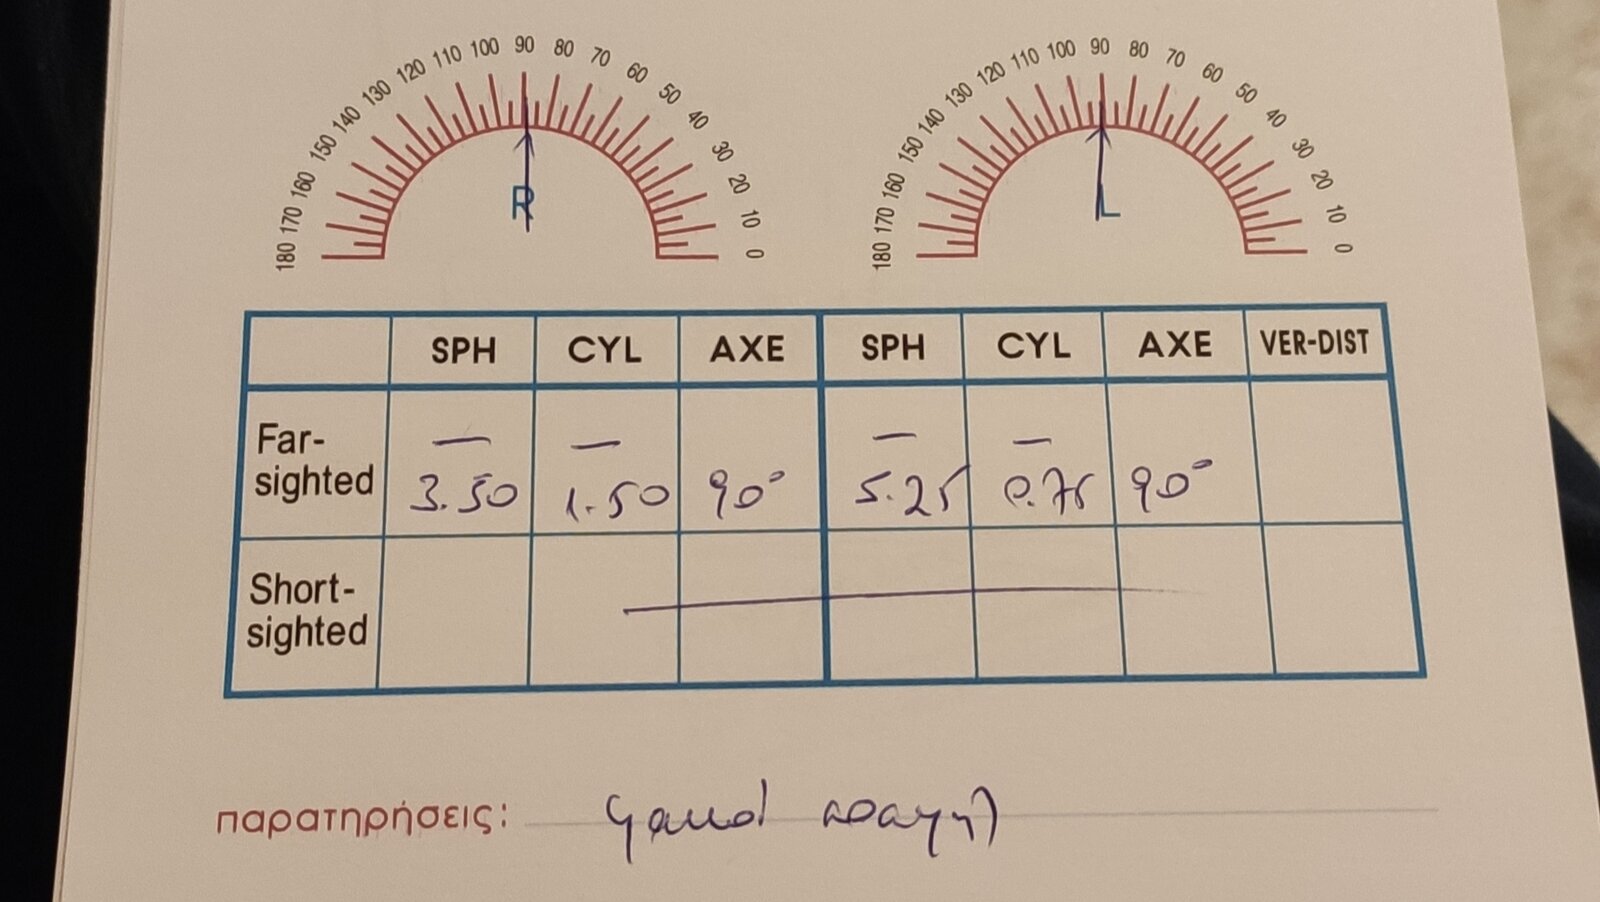 180 170 160 150 140 130 120 110 100 90 80 70 60 50 40 30 20 10 0
R
180 170 160 150 140 130 120 110 100 90 80 70 60 50 40 30 20 10 0
L
SPH CYL AXE SPH CYL AXE VER-DIST
Far-
— — — —
sighted 3.50 1.50 90° 5.25 0.75 90°
Short-
sighted
παρατηρήσεις: φακοί